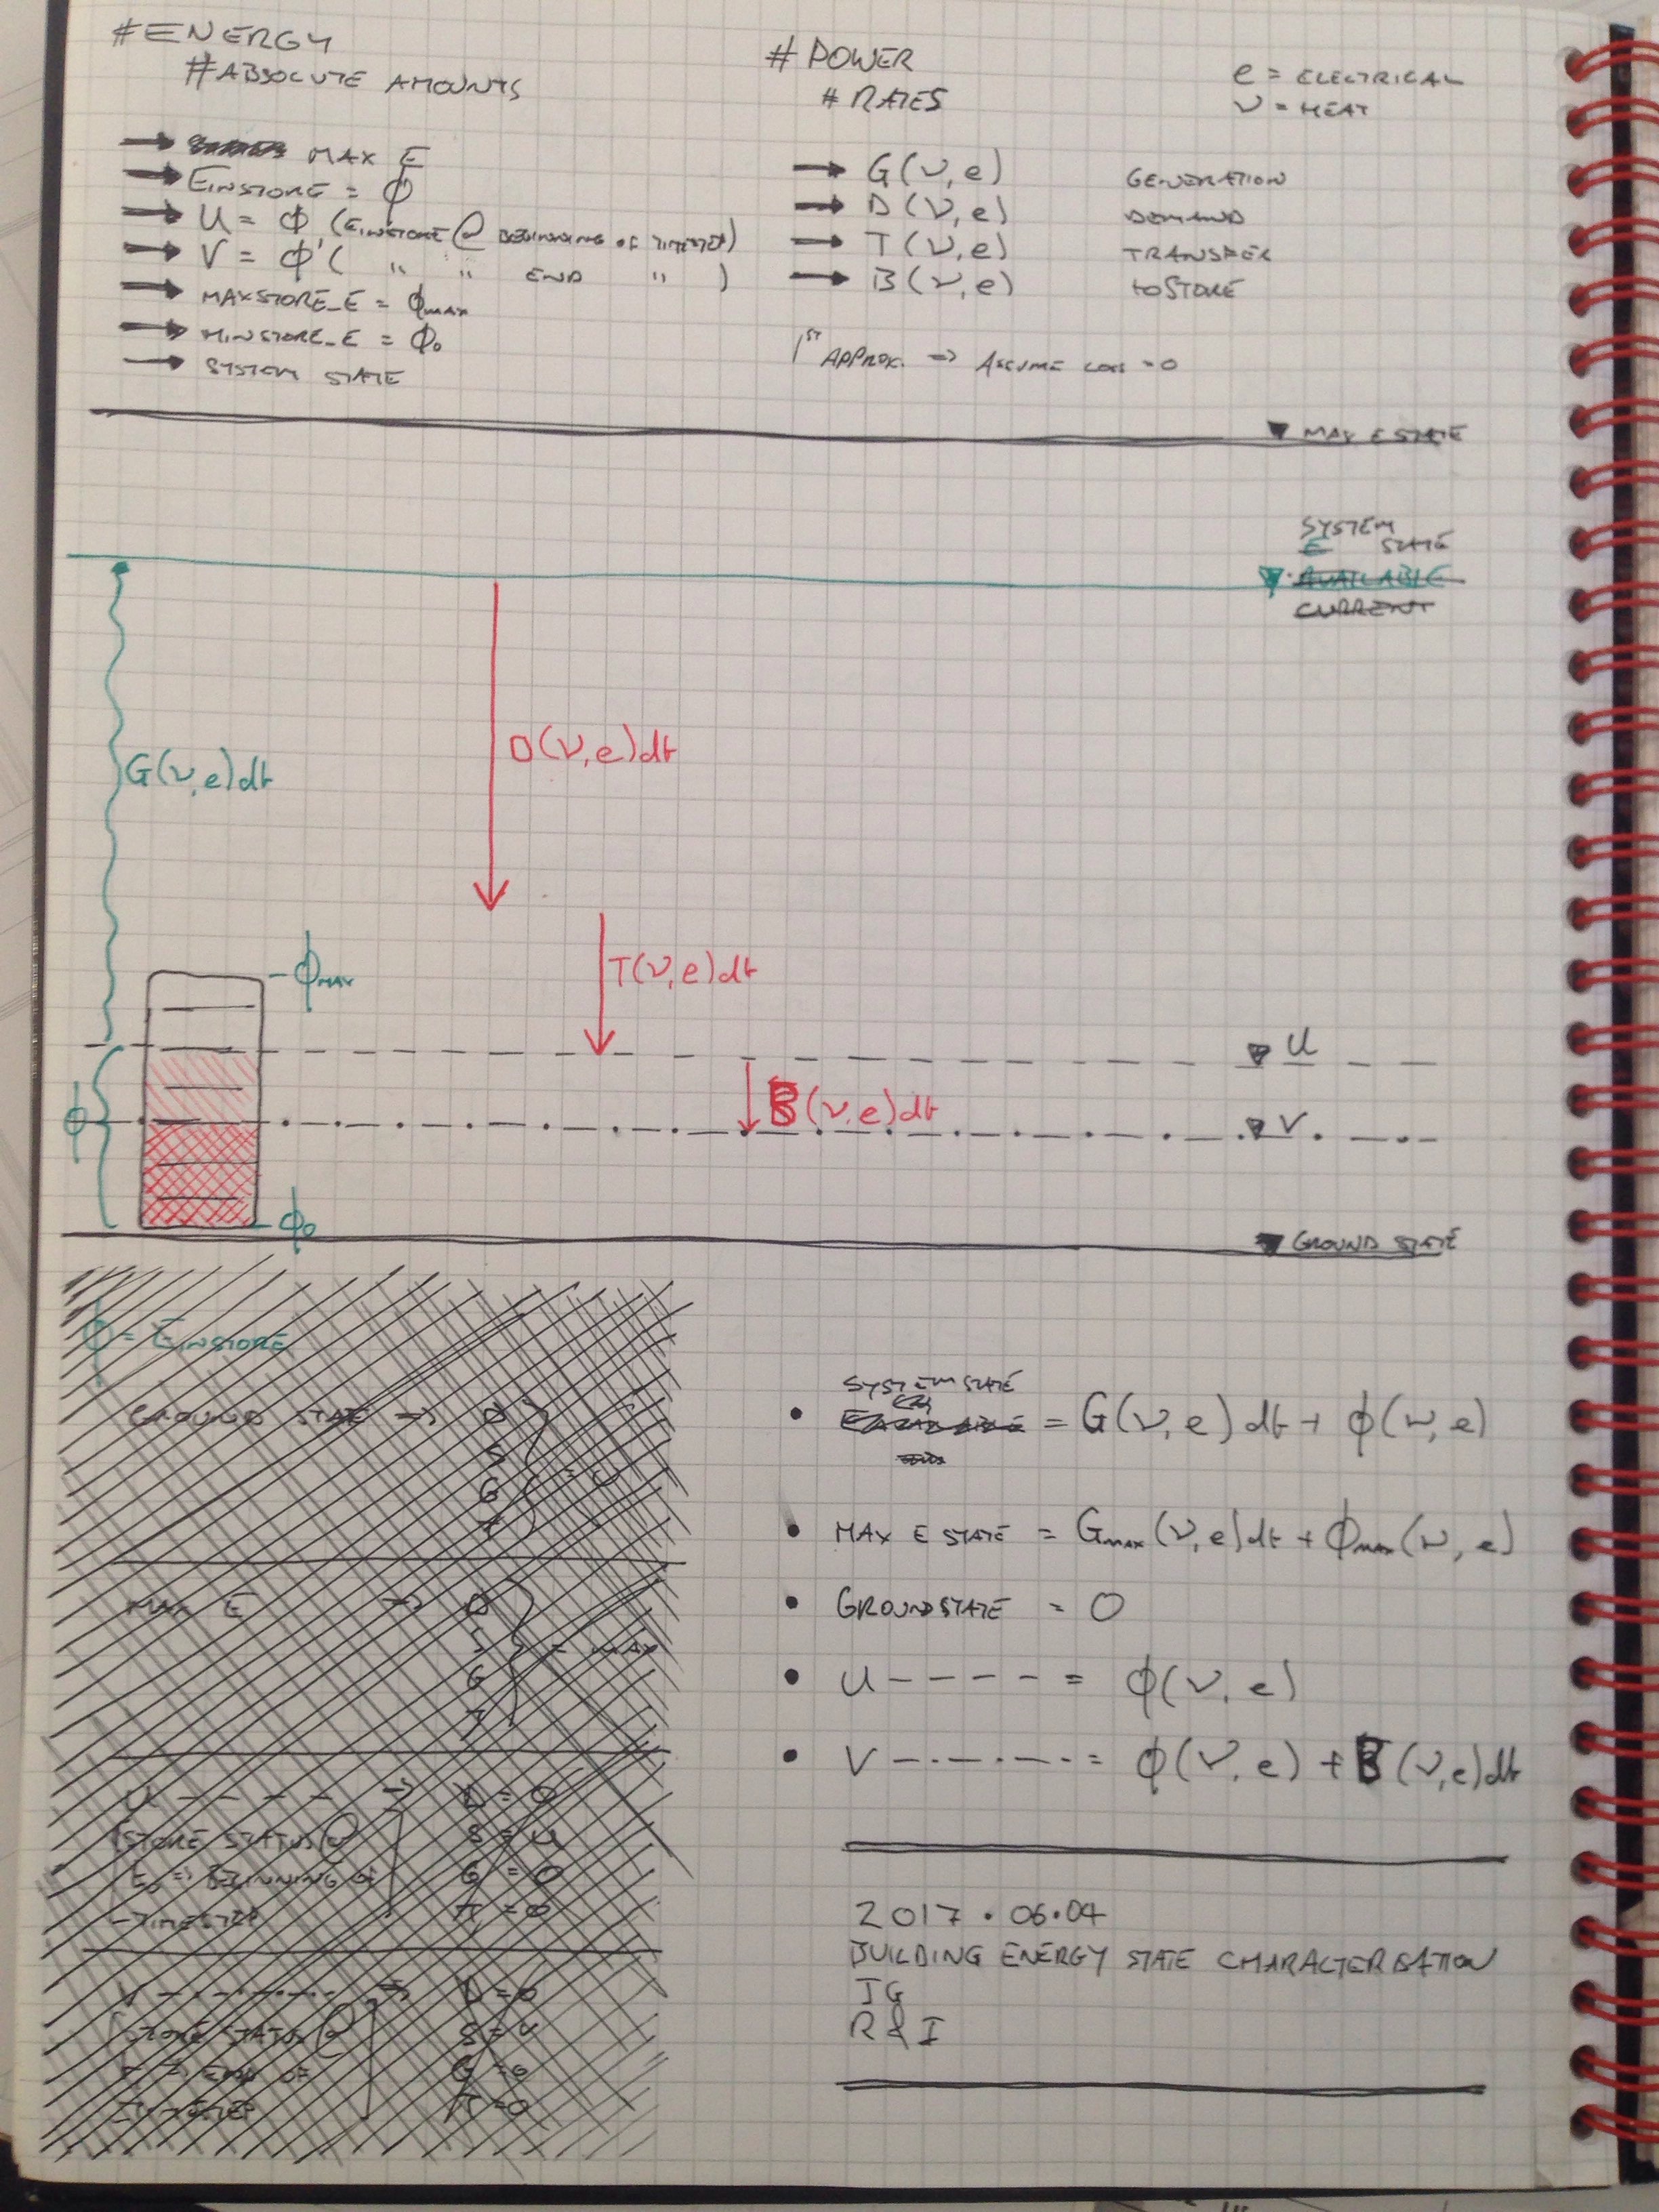 #ENERGY
#ABSOLUTE AMOUNTS
→ MAX E
→ EINSTORE = ϕ
→ U = ϕ (EINSTORE @ BEGINNING OF TIMESTEP)
→ V = ϕ' ( " " END " )
→ MAXSTORE_E = ϕMAX
→ MINSTORE_E = ϕ0
→ SYSTEM STATE
# POWER
# RATES
→ G(ν,e) GENERATION
→ D(ν,e) DEMAND
→ T(ν,e) TRANSFER
→ B(ν,e) toSTORE
1ST APPROX. => ASSUME LOSS = 0
e = ELECTRICAL
ν = HEAT
▼ MAX E STATE
SYSTEM
E STATE
▼ AVAILABLE
CURRENT
G(ν,e)dt
D(ν,e)dt
T(ν,e)dt
ϕMAX
▼ U
B(ν,e)dt
ϕ
▼ V
ϕ0
▼ GROUND STATE
ϕ = EINSTORE
GROUND STATE =>
G
MAX E => D
G
T
= MAX
U - - - - => D = 0
STORE STATUS @ S = U
=> BEGINNING OF G = 0
TIMESTEP T = 0
V - · - · - => D = 0
STORE STATUS @ S = V
=> END OF G = 0
TIMESTEP T = 0
SYSTEM STATE
• = G(ν,e)dt + ϕ(ν,e)
• MAX E STATE = GMAX(ν,e)dt + ϕMAX(ν,e)
• GROUNDSTATE = 0
• U - - - - = ϕ(ν,e)
• V - · - · - · - = ϕ(ν,e) + B(ν,e)dt
2017.06.04
BUILDING ENERGY STATE CHARACTERISATION
JG
R&I